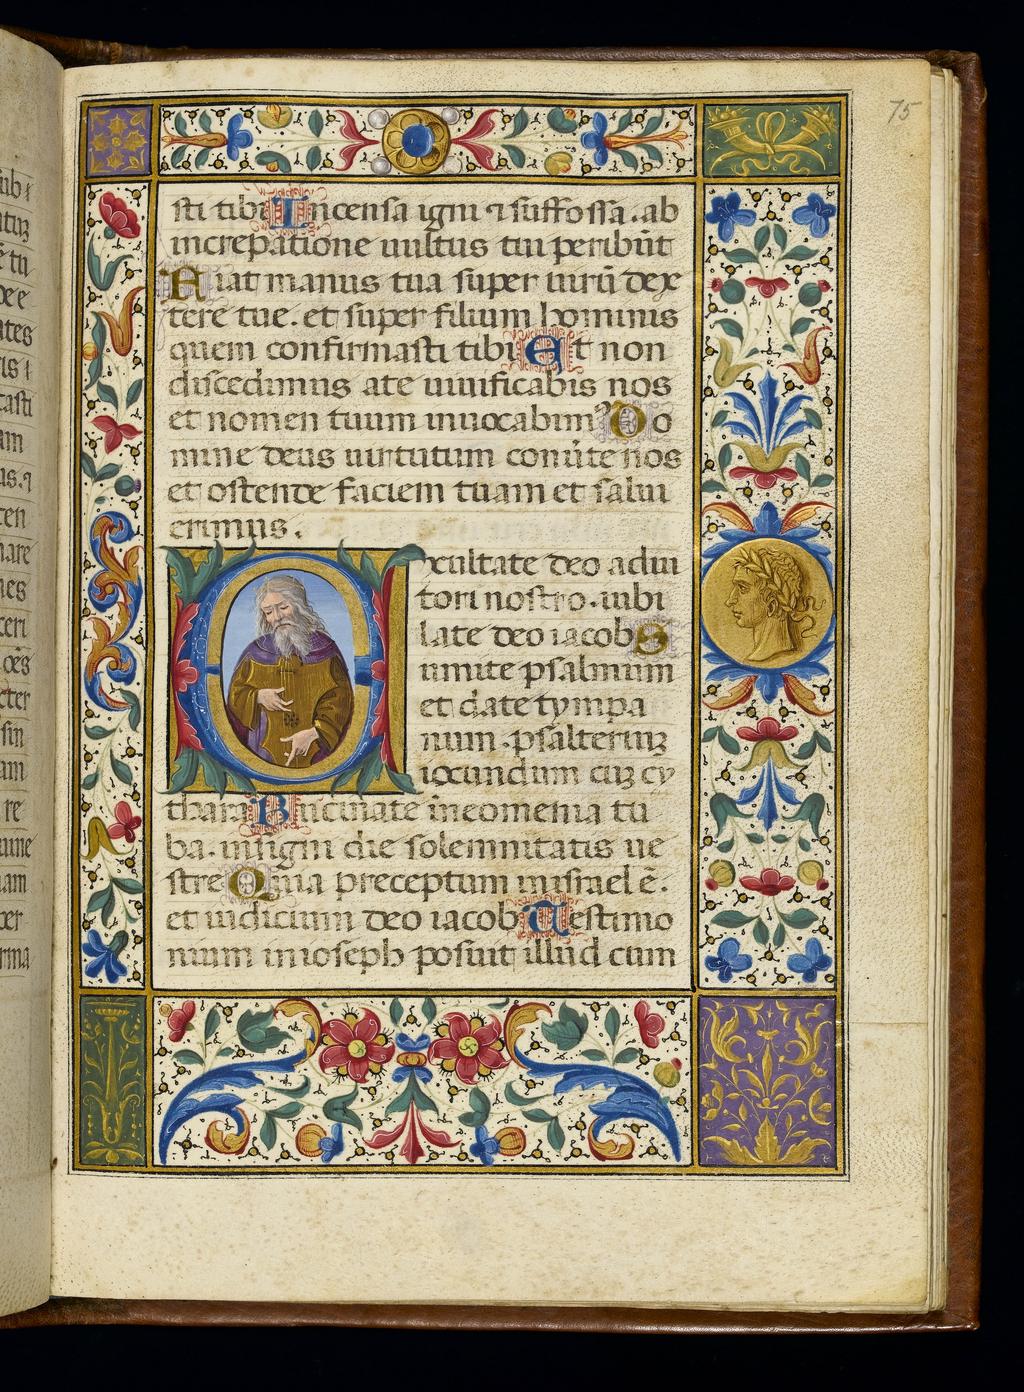 75
sti tibi Incensa igni ⁊ suffossa . ab
increpatione uultus tui peribūt
Fiat manus tua super uirū dex
tere tue . et super filium hominis
quem confirmasti tibi Et non
discedimus ate uiuificabis nos
et nomen tuum inuocabimꝰ Do
mine deus uirtutum conūte nos
et ostende faciem tuam et salui
erimus .
Exultate deo adiu
tori nostro . iubi
late deo iacob S
umite psalmum
et date tympa
num . psalteriuꝫ
iocundum cuꝫ cy
thara Buccinate ineomenia tu
ba . insigni die solemnitatis ue
stre Quia preceptum inisrael ē .
et iudicium deo iacob Testimo
nium inioseph posuit illud cum